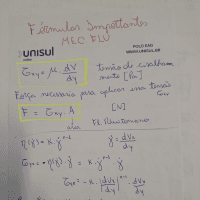 Fórmulas Importantes
MEC FLU
unisul
POLO EAD
Gxy = μ. dV/dy
tensão de cisalhamento [Pa]
Força necessária para aplicar essa tensão
Gxy
F = Gxy. A [N]
área
Fl. Newtoniano
η(γ̇) = K. γ̇ⁿ⁻¹ γ̇ = dVx/dy
Gyx = -η(γ̇). γ̇ = K. γ̇ⁿ⁻¹ γ̇
Gyx = -K. |dVx/dy|ⁿ⁻¹ dVx/dy